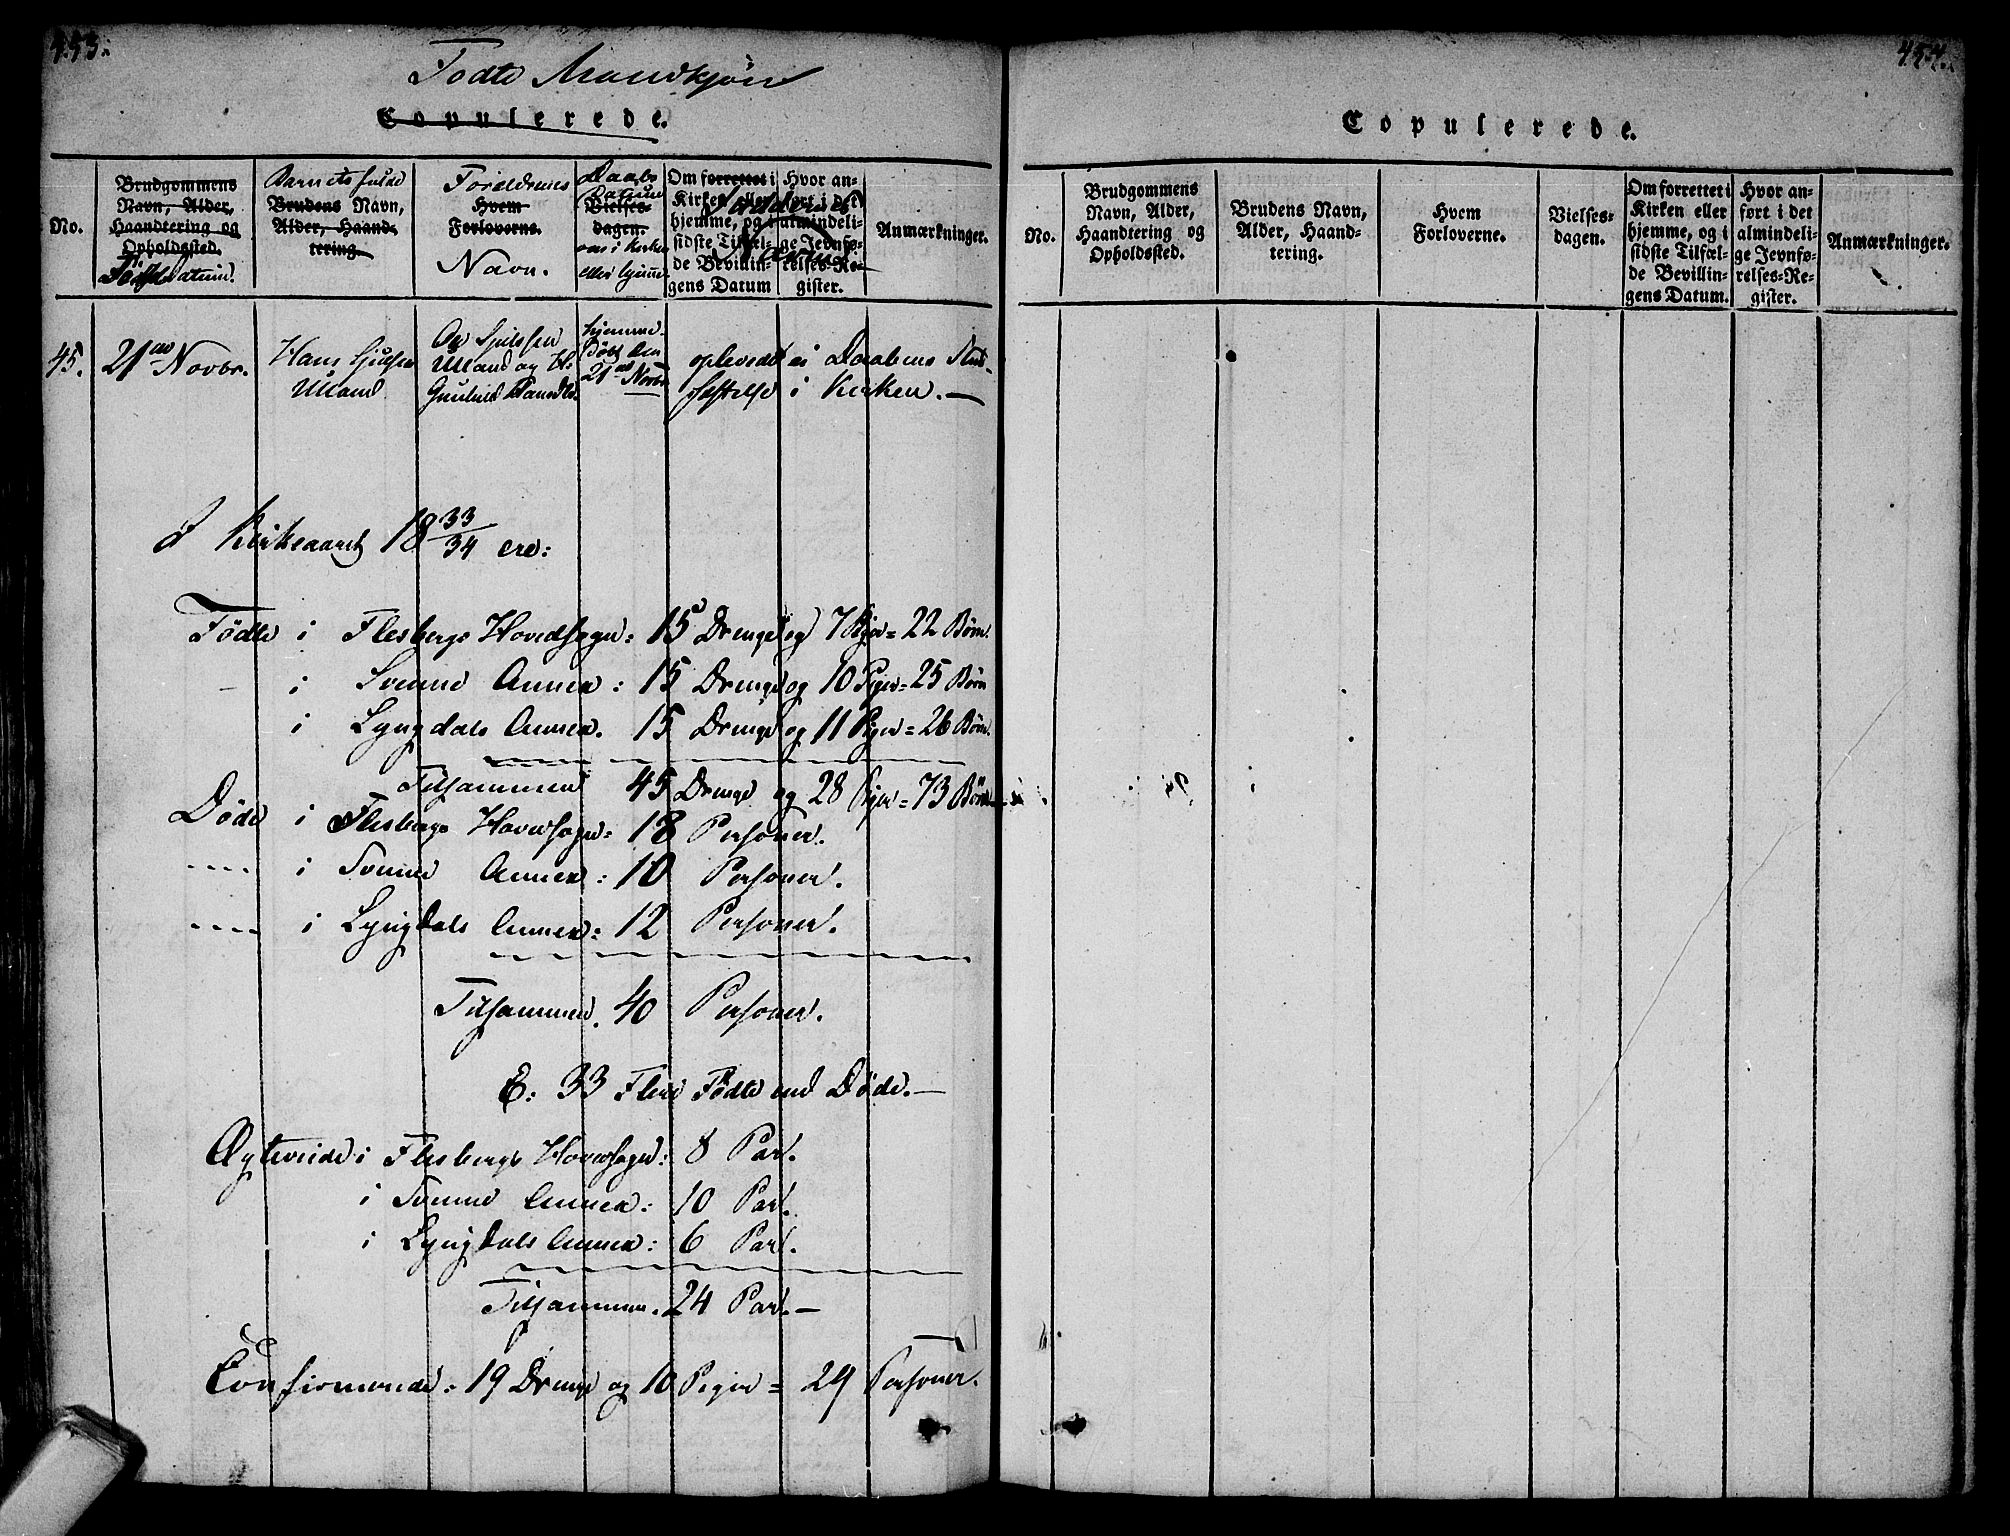 453.
Födte Mandkjøn
Copulerede.
No.
Brudgommens
Navn, Alder,
Haandtering og
Opholdssted.
Föds datum.
Barnets fulde
Brudens Navn,
Alder, Haand-
tering.
Forældrenes
Hvem
Forloverne.
Navn.
Daabs
Datum
Vielses-
dagen.
om i Kirken
eller hjemme
Om forrettet i
Kirken eller
hjemme, og i
sidste Tilfæl-
de Bevillin-
gens Datum
Hvor an-
ført i det
almindeli-
ge Jevnfø-
relses-Re-
gister.
Faddernes
Navne
Anmærkninger.
45.
21de Novbr.
Hans
Uland
Uland og H:
hjemme-
döbt den
21de Novbr.
oplevede ei Daabens Stad-
fæstelse i Kirken.—
I Kirkeaaret 18 33/34 ere:
Födte i Flesbergs Hovedsogn: 15 Drenge og 7 Piger = 22 Börn.
— i Svenne Annex: 15 Drenge og 10 Piger = 25 Börn
i Lyngdals Annex. 15 Drenge og 11 Piger = 26 Börn.
Tilsammen 45 Drenge og 28 Piger = 73 Börn
Döde i Flesbergs Hovedsogn: 18 Personer.
---- i Svenne Annex: 10 Personer.
---- i Lyngdals Annex: 12 Personer.
Tilsammen. 40 Personer.
E: 33 Flere Födte end Döde.—
Ægteviede i Flesbergs Hovedsogn: 8 Par.
i Svenne Annex: 10 Par.
i Lyngdals Annex: 6 Par.
Tilsammen. 24 Par.—
Confirmerede: 19 Drenge og 10 Piger = 29 Personer.
454.
Copulerede.
No.
Brudgommens
Navn, Alder,
Haandtering og
Opholdssted.
Brudens Navn,
Alder, Haand-
tering.
Hvem
Forloverne.
Vielses-
dagen.
Om forrettet i
Kirken eller
hjemme, og i
sidste Tilfæl-
de Bevillin-
gens Datum.
Hvor an-
ført i det
almindeli-
ge Jevnfø-
relses-Re-
gister.
Anmærkninger.